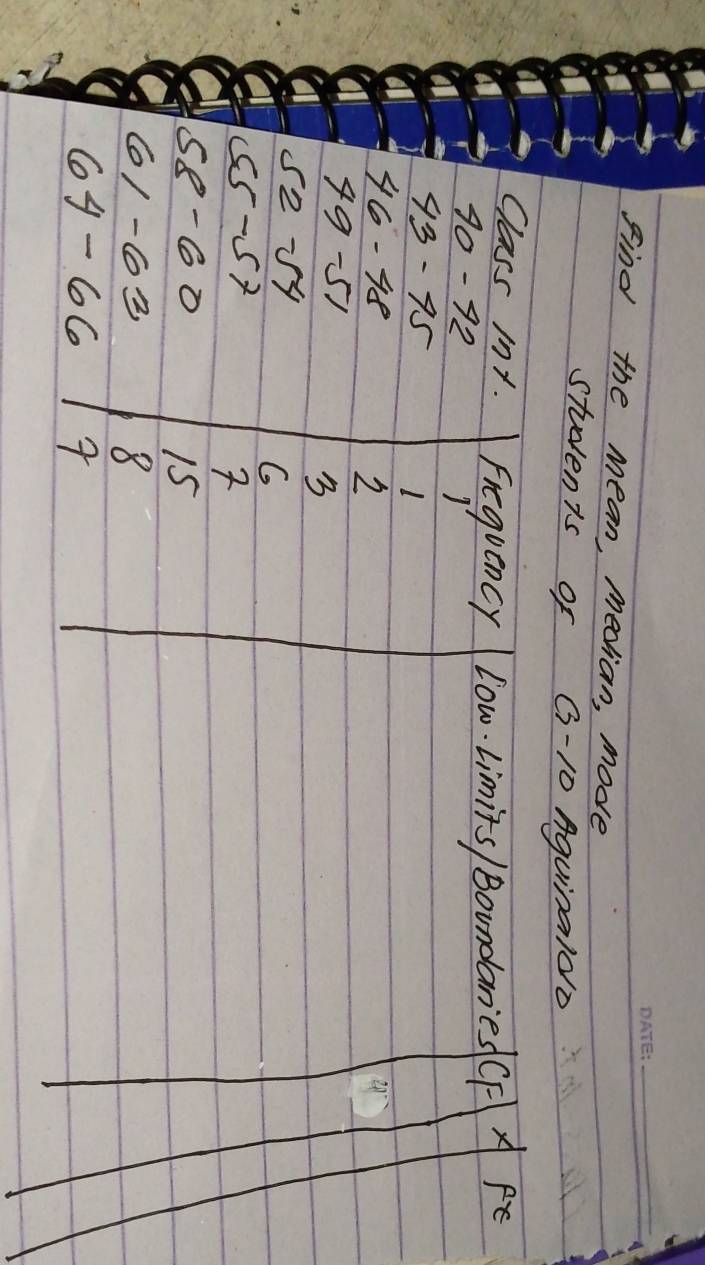 DATE:
Find the mean, median, mode
students of G-10 Aguinaldo
Class Int. Frequency Low. Limits/Boundaries CF x fx
40 - 42 1
43 - 45 1
46 - 48 2
49 - 51 3
52 - 54 6
55 - 57 7
58 - 60 15
61 - 63 8
64 - 66 7